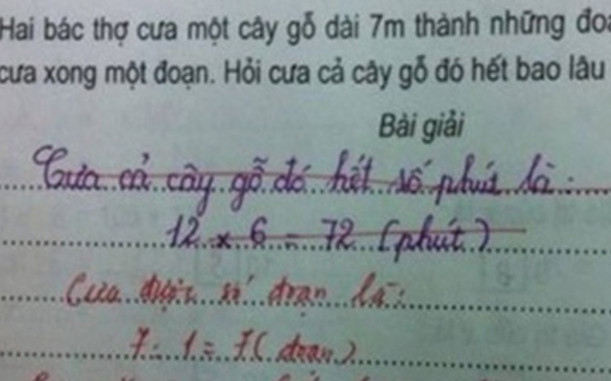 Hai bác thợ cưa một cây gỗ dài 7m thành những đoạ
cưa xong một đoạn. Hỏi cưa cả cây gỗ đó hết bao lâu
Bài giải
Cưa cả cây gỗ đó hết số phút là:
12 x 6 = 72 (phút)
Cưa được số đoạn là:
7 : 1 = 7 (đoạn)